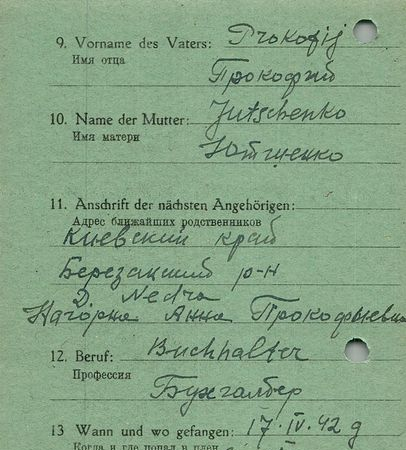 9. Vorname des Vaters: Prokofij
Имя отца
Прокофий
10. Name der Mutter: Jutschenko
Имя матери
Ютщенко
11. Anschrift der nächsten Angehörigen:
Адрес ближайших родственников
Киевский край
Березанский р-н
D. Nedra
Нагорна Анна Прокофьевна
12. Beruf: Buchhalter
Профессия
Бухгалтер
13 Wann und wo gefangen: 17. IV. 42 g
Когда и где попал в плен